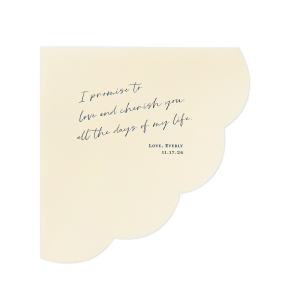 I promise to
love and cherish you
all the days of my life.
Love, Everly
11.17.26